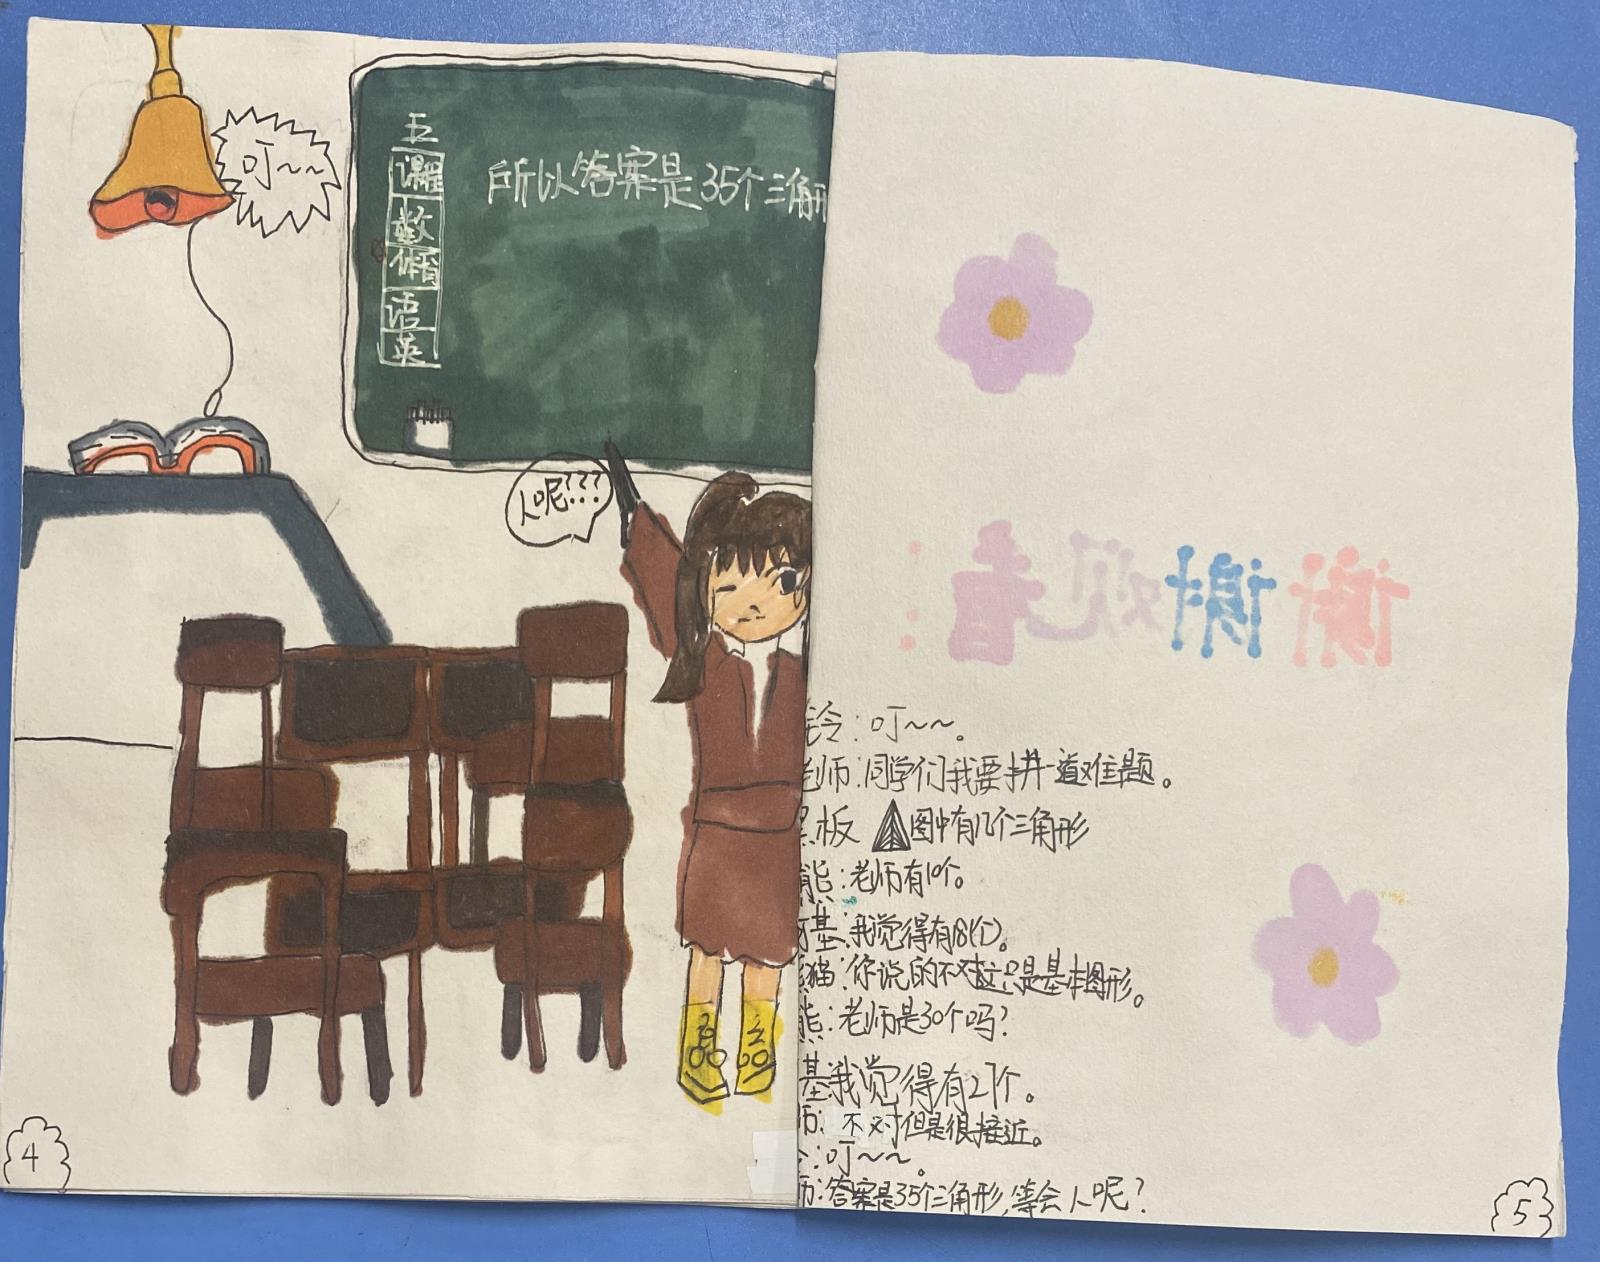 叮~~
五
课程
数
体育
语
英
所以答案是35个三角形
人呢???
4
谢谢观看!
铃:叮~~。
老师:同学们我要拼一道难题。
黑板 图中有几个三角形
熊:老师有10个。
基:我觉得有8个。
熊猫:你说的不对这只是基本图形。
熊:老师是30个吗?
基我觉得有21个。
师:不对但是很接近。
:叮~~。
师:答案是35个三角形,等会人呢?
5